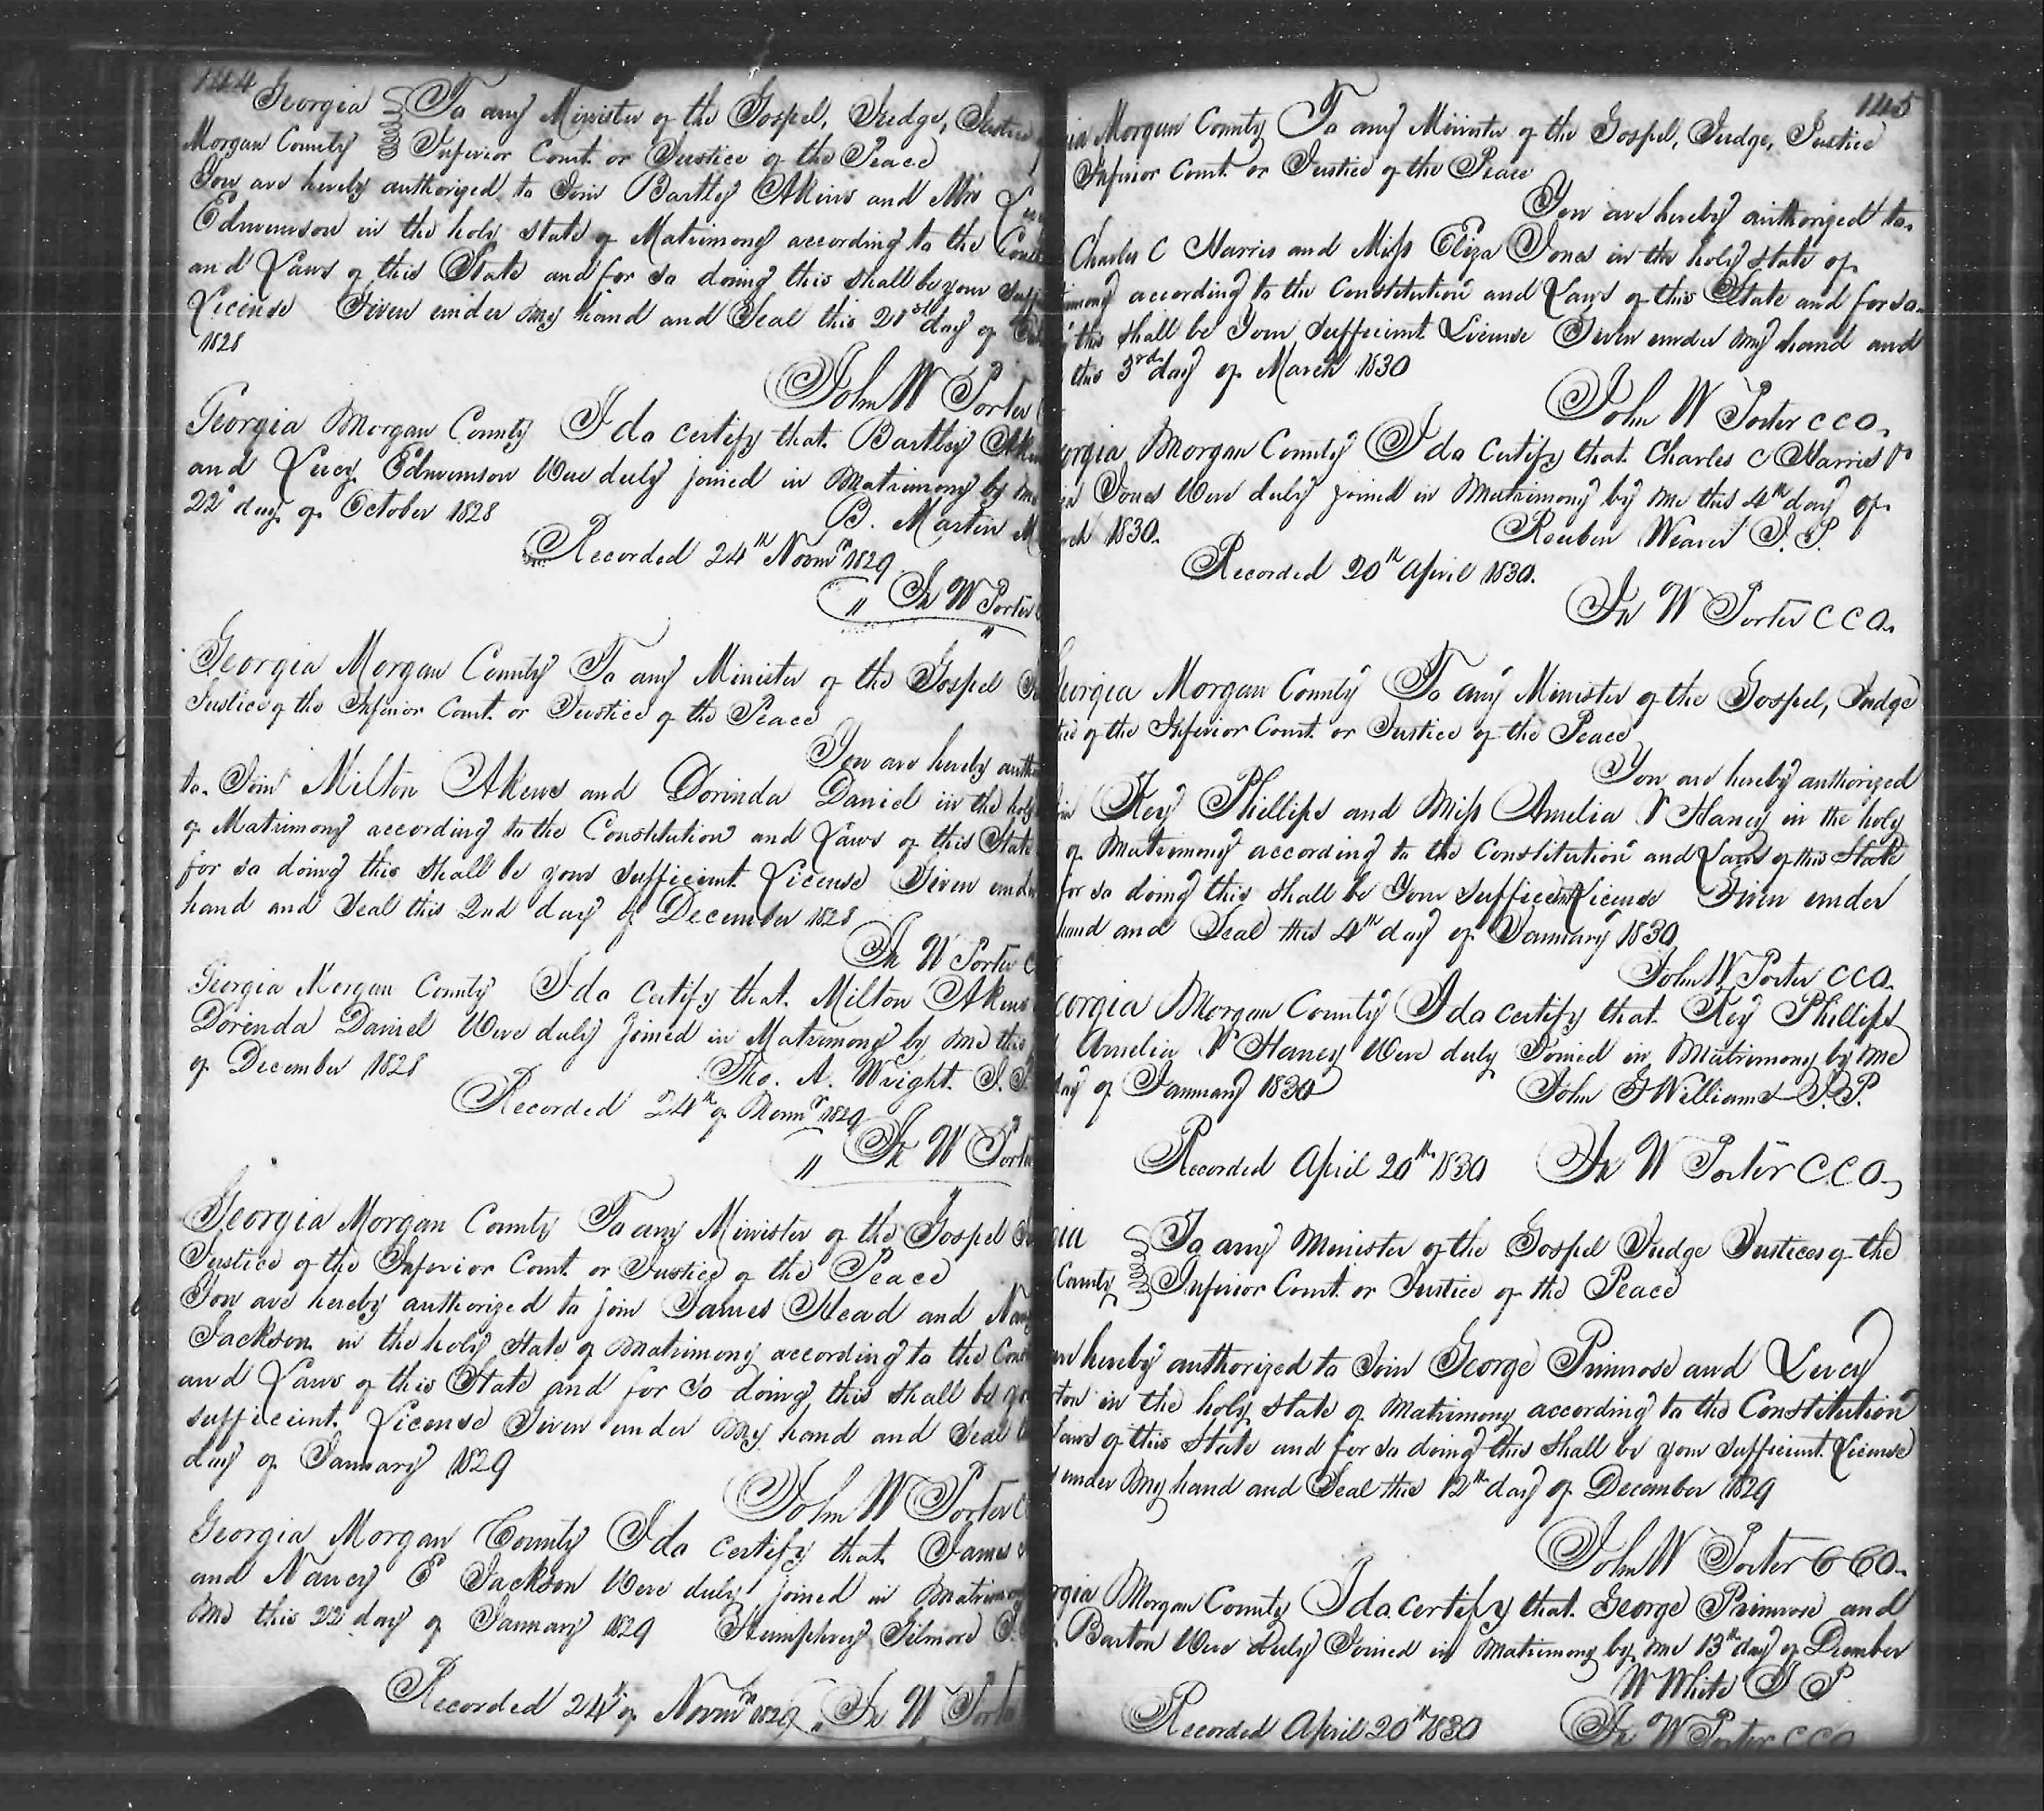 144
Georgia To any Minister of the Gospel, Judge, Justice
Morgan County Inferior Court or Justice of the Peace
You are hereby authorized to Join Bartley Akins and Mrs
Edmunson in the holy state of Matrimony according to the
and Laws of this State and for so doing this shall be your
License Given under my hand and Seal this 21st day of
1828
John W Porter
Georgia Morgan County I do certify that Bartley
and Lucy Edmunson Were duly joined in Matrimony by me
22d day of October 1828
B. Martin M
Recorded 24th Novmr 1829
Jn W Porter
Georgia Morgan County To any Minister of the Gospel
Justice of the Inferior Court or Justice of the Peace
You are hereby
to Join Milton Akens and Dorinda Daniel in the holy
of Matrimony according to the Constitution and Laws of this State
for so doing this shall be your sufficient License Given
hand and Seal this 2nd day of December 1828
Jn W Porter
Georgia Morgan County I do certify that Milton Akens
Dorinda Daniel Were duly joined in Matrimony by me this
of December 1828
Tho. A. Wright J.
Recorded 24th of Novmr 1829
Jn W Porter
Georgia Morgan County To any Minister of the Gospel
Justice of the Inferior Court or Justice of the Peace
You are hereby authorized to join James Head and
Jackson in the holy state of Matrimony according to the
and Laws of this State and for so doing this shall be
sufficient License Given under my hand and Seal
day of January 1829
John W Porter
Georgia Morgan County I do certify that James
and Nancy E Jackson Were duly joined in
Me this 22d day of January 1829 Humphrey Gilmore
Recorded 24th of Novmr 1829 Jn W Porter
145
Morgan County To any Minister of the Gospel, Judge, Justice
Inferior Court or Justice of the Peace
You are hereby authorized to
Charles C Harris and Miss Eliza Jones in the holy state of
according to the Constitution and Laws of this State and for so
this shall be Your sufficient License Given under my hand and
this 3rd day of March 1830
John W Porter CCO.
Morgan County I do Certify that Charles C Harris &
Jones Were duly joined in Matrimony by me this 4th day of
1830.
Reuben Weaver J. P.
Recorded 20th April 1830.
Jn W Porter CCO.
Georgia Morgan County To any Minister of the Gospel, Judge
of the Inferior Court or Justice of the Peace
You are hereby authorized
Key Phillips and Miss Amelia V Haney in the holy
of Matrimony according to the Constitution and Laws of this State
for so doing this shall be Your sufficient License Given under
hand and Seal this 4th day of January 1830
John W Porter CCO.
Morgan County I do certify that Key Phillips
Amelia V Haney Were duly Joined in Matrimony by Me
day of January 1830
John G Williams J.P.
Recorded April 20th 1830 Jn W Porter C.C.O.
To any Minister of the Gospel Judge Justices of the
County Inferior Court or Justice of the Peace
hereby authorized to Join George Primrose and Lucy
in the holy state of Matrimony according to the Constitution
Laws of this State and for so doing this shall be your sufficient License
under My hand and Seal this 12th day of December 1829
John W Porter CCO.
Morgan County I do certify that George Primrose and
Barton Were duly Joined in Matrimony by me 13th day of Dcember
W White J P
Recorded April 20th 1830
Jn W Porter CCO